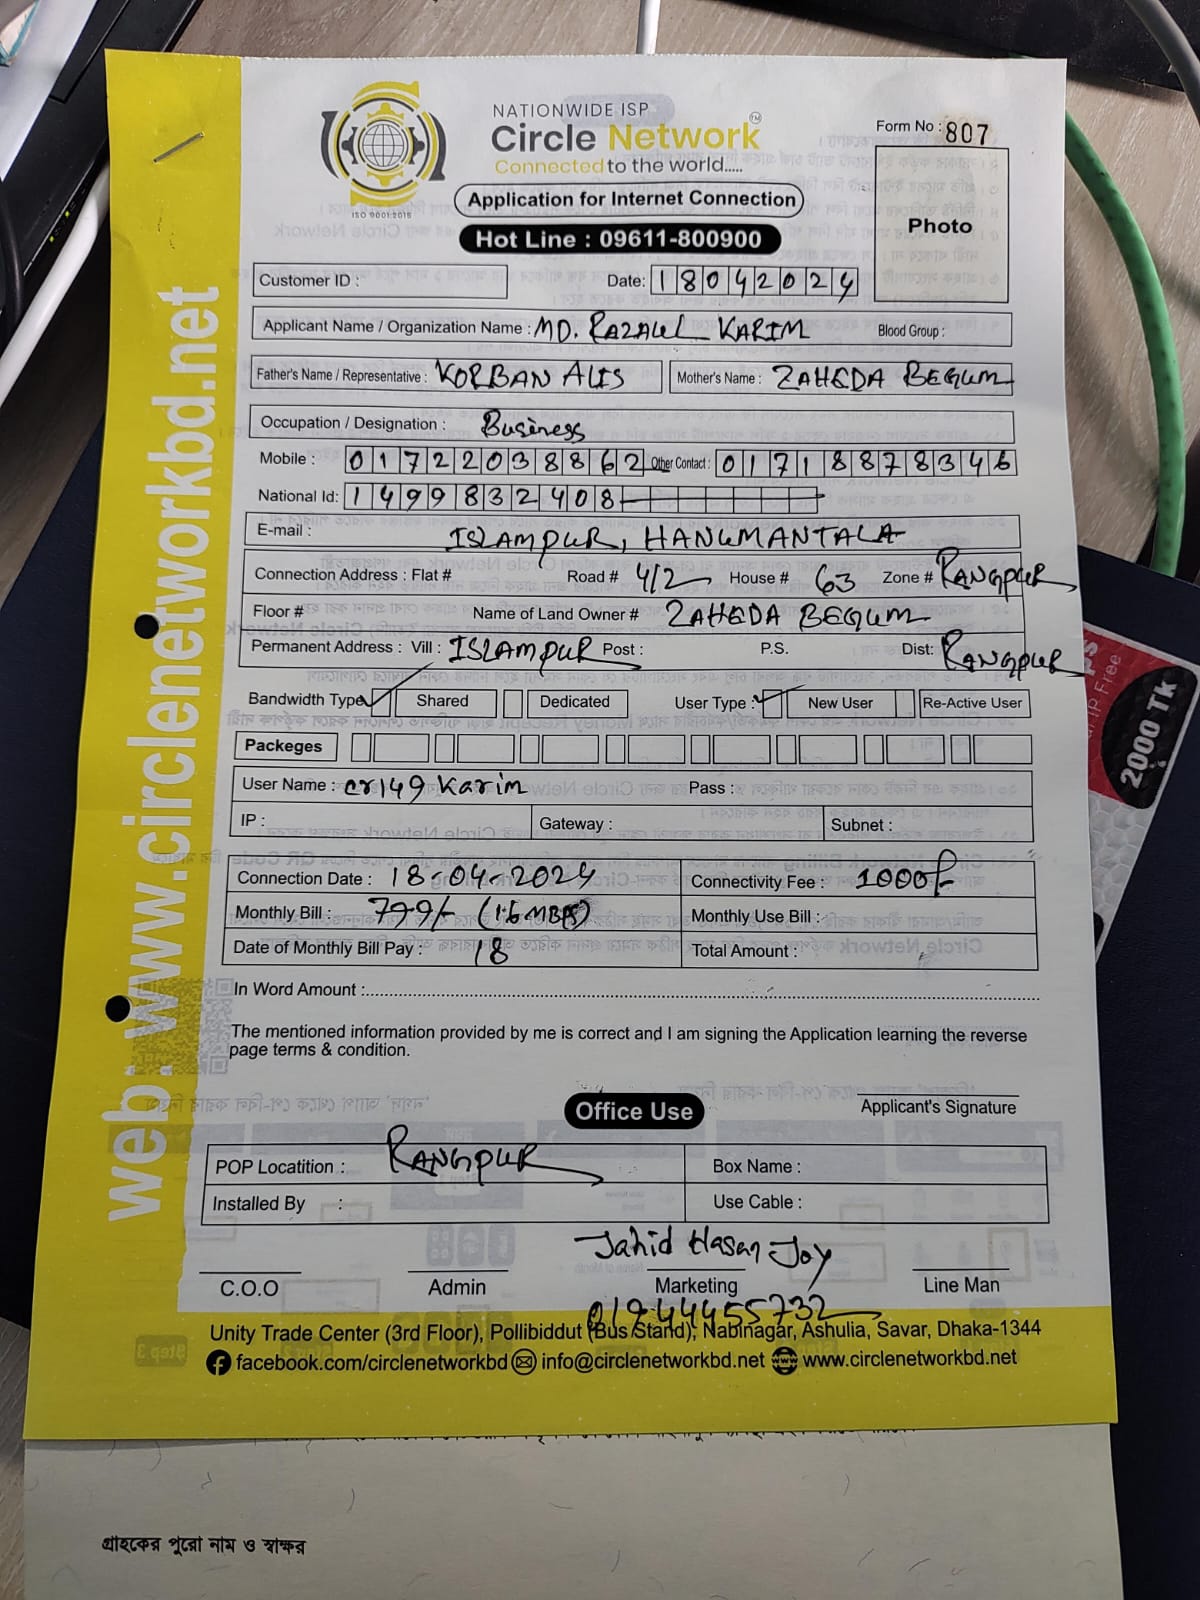 NATIONWIDE ISP
Circle Network™
Connected to the world.....
ISO 9001:2015
Form No : 807
Application for Internet Connection
Photo
Hot Line : 09611-800900
Customer ID :
Date: 18042024
Applicant Name / Organization Name : MD. RAZAUL KARIM Blood Group :
Father's Name / Representative : KORBAN ALIS Mother's Name : ZAHEDA BEGUM
Occupation / Designation : Business
Mobile : 01722038862 Other Contact : 01718878346
National Id: 1499832408
E-mail : ISLAMPUR, HANUMANTALA
Connection Address : Flat # Road # 4/2 House # 63 Zone # RANGPUR
Floor # Name of Land Owner # ZAHEDA BEGUM
Permanent Address : Vill : ISLAMPUR Post : P.S. Dist: RANGPUR
Bandwidth Type Shared Dedicated User Type : New User Re-Active User
Packeges
User Name : cr149 Karim Pass :
IP : Gateway : Subnet :
Connection Date : 18-04-2024 Connectivity Fee : 1000/-
Monthly Bill : 799/- (16 MBPS) Monthly Use Bill :
Date of Monthly Bill Pay : 18 Total Amount :
In Word Amount :
The mentioned information provided by me is correct and I am signing the Application learning the reverse
page terms & condition.
Applicant's Signature
Office Use
POP Locatition : RANGPUR Box Name :
Installed By : Use Cable :
Jahid Hasan Joy
C.O.O Admin Marketing Line Man
01944455732
Unity Trade Center (3rd Floor), Pollibiddut (Bus Stand), Nabinagar, Ashulia, Savar, Dhaka-1344
facebook.com/circlenetworkbd info@circlenetworkbd.net www.circlenetworkbd.net
web: www.circlenetworkbd.net
2000 Tk
IP Free
গ্রাহকের পুরো নাম ও স্বাক্ষর